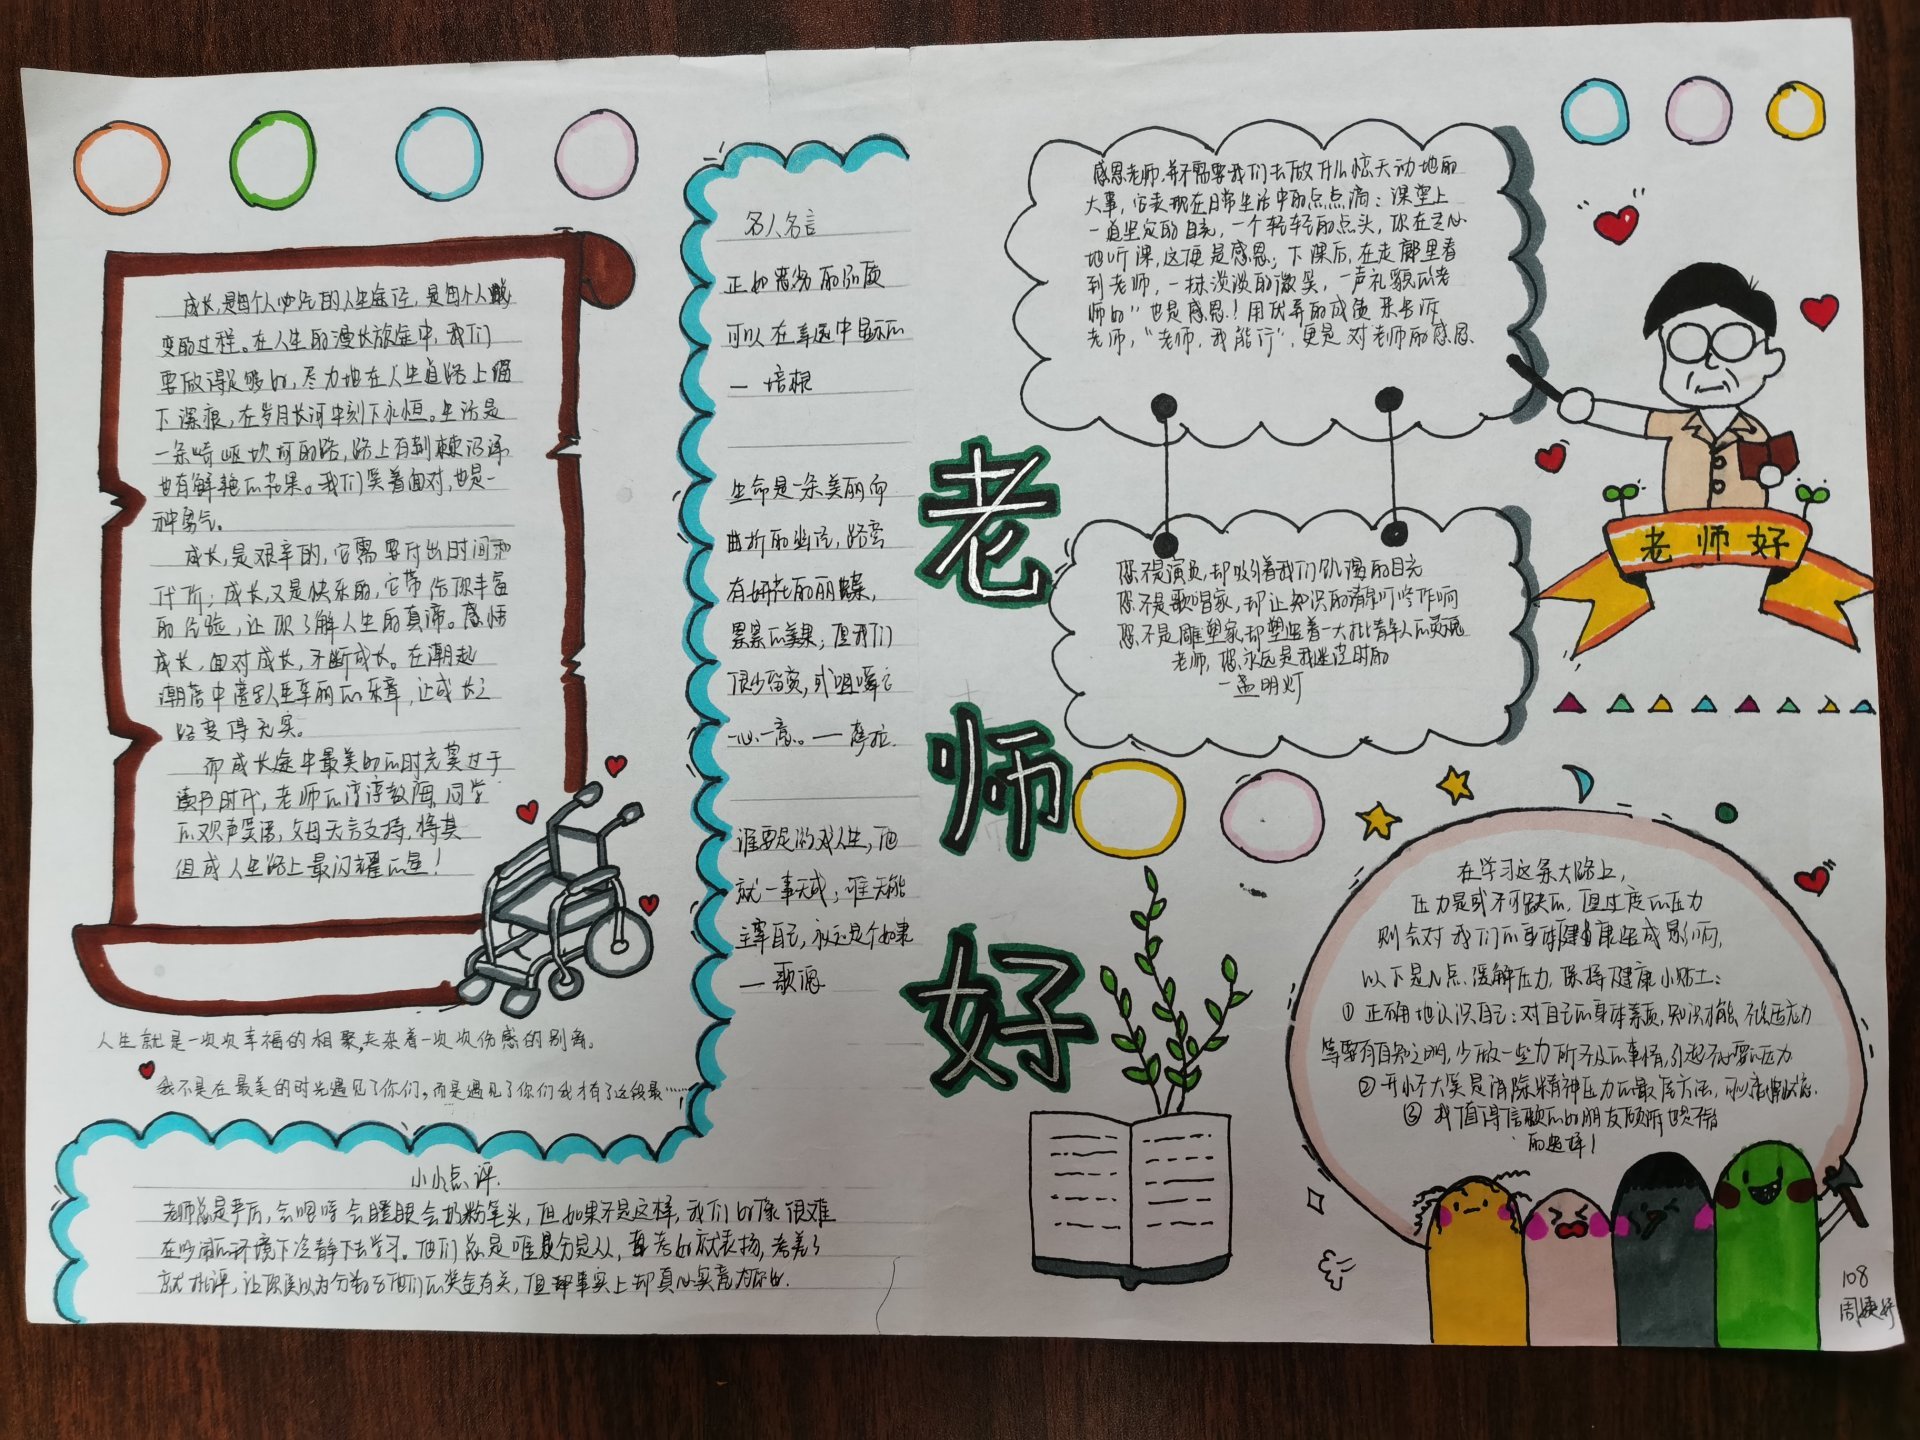 成长,是每个人必经的人生途径,是每个人蜕
变的过程。在人生的漫长旅途中,我们
要做得足够好,尽力地在人生道路上留
下深痕,在岁月长河中刻下永恒。生活是
一条崎岖坎坷的路,路上有荆棘沼泽
也有鲜艳的花果。我们笑着面对,也是一
种勇气。
成长,是艰辛的,它需要付出时间和
代价;成长,又是快乐的,它带给你丰富
的经验,让你了解人生的真谛。感悟
成长,面对成长,不断成长。在潮起
潮落中谱写人生华丽的乐章,让成长之
路变得充实。
而成长途中最美好的时光莫过于
读书时代,老师的谆谆教诲,同学
的欢声笑语,父母无言支持,将其
组成人生路上最闪耀的星!
人生就是一次次幸福的相聚,夹杂着一次次伤感的别离。
我不是在最美的时光遇见了你们,而是遇见了你们我才有了这段最……
小小点评.
老师总是严厉,会吼啼会瞪眼会扔粉笔头,但如果不是这样,我们好像很难
在吵闹的环境下冷静下去学习。他们总是唯分是从,考好就表扬,考差了
就批评,让你误以为分数与他们的奖金有关,但事实上却真心实意为你好.
名人名言
正如
可以在幸运中显示的
— 培根
生命是一条美丽而
曲折的幽径,路旁
有妍花的丽蝶,
累累的美果;但我们
很少留意,或咀嚼它
一心一意。— 摩拉.
谁要是游戏人生,他
就一事无成;谁无能
主宰自己,永远是个奴隶
— 歌德
老
师
好
感恩老师,并不需要我们去做什么炫天动地的
大事,它表现在日常生活中的点点滴:课堂上
一道坚定的目光,一个轻轻的点头,你在专心
地听课,这便是感恩;下课后,在走廊里看
到老师,一抹淡淡的微笑,一声礼貌的老
师好"也是感恩!用优异的成绩来告诉
老师,"老师,我能行",更是对老师的感恩.
您不是演员,却吸引着我们饥渴的目光
您不是歌唱家,却让知识的清泉叮咚作响
您不是雕塑家,却塑造着一大批青年人的灵魂
老师,您永远是我迷茫时的
一盏明灯
老师好
在学习这条大路上,
压力是或不可缺的,但过度的压力
则会对我们的身体健康造成影响,
以下是几点缓解压力,保持健康小贴士:
① 正确地认识自己:对自己的身体素质,知识才能,
等要有自知之明,少做一些力所不及的事情,引起不必要的压力
② 开怀大笑是消除精神压力的最佳方法,
③ 找值得信赖的好朋友倾听也是不错
的选择!
108
周婕妤